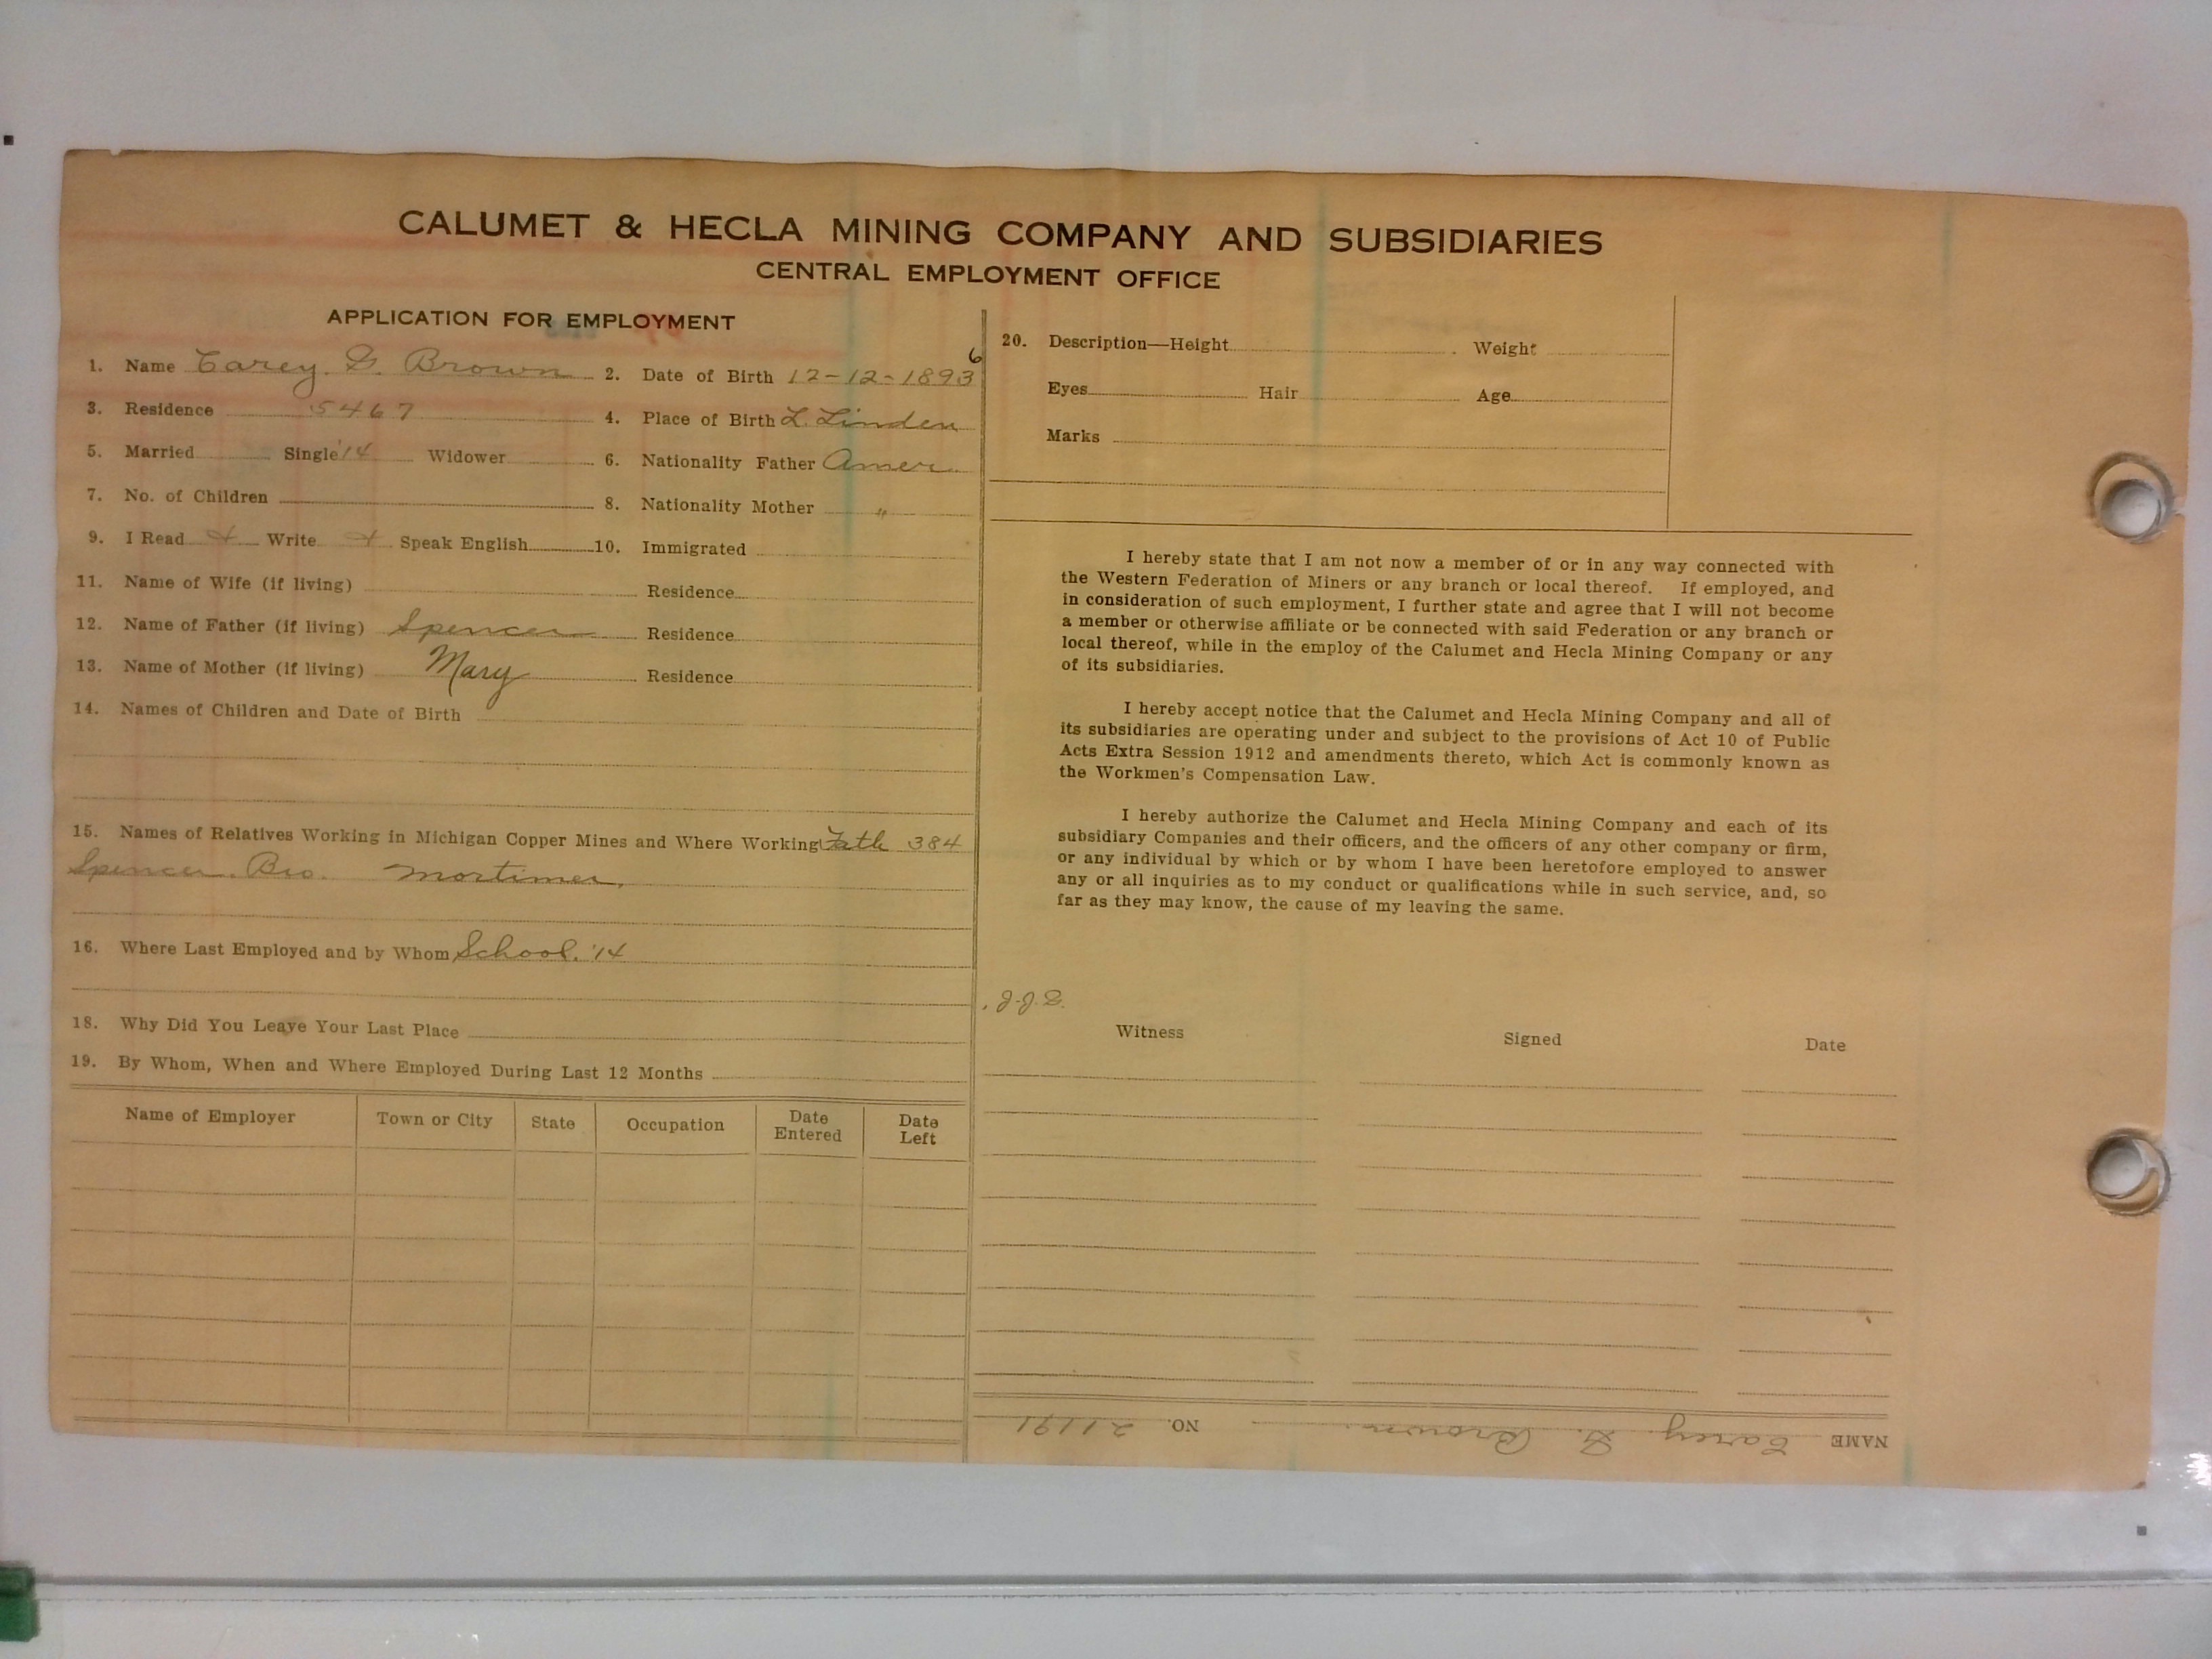 CALUMET & HECLA MINING COMPANY AND SUBSIDIARIES
CENTRAL EMPLOYMENT OFFICE
APPLICATION FOR EMPLOYMENT
1. Name Carey. G. Brown 2. Date of Birth 12-12-1893 6
3. Residence 5467 4. Place of Birth L. Linden
5. Married Single '14 Widower 6. Nationality Father Amer
7. No. of Children 8. Nationality Mother "
9. I Read Write Speak English 10. Immigrated
11. Name of Wife (if living) Residence
12. Name of Father (if living) Spencer Residence
13. Name of Mother (if living) Mary Residence
14. Names of Children and Date of Birth
15. Names of Relatives Working in Michigan Copper Mines and Where Working Fath 384
Spencer. Bro. Mortimer.
16. Where Last Employed and by Whom School. '14
18. Why Did You Leave Your Last Place
19. By Whom, When and Where Employed During Last 12 Months
Name of Employer Town or City State Occupation Date Entered Date Left
20. Description—Height Weight
Eyes Hair Age
Marks
I hereby state that I am not now a member of or in any way connected with
the Western Federation of Miners or any branch or local thereof. If employed, and
in consideration of such employment, I further state and agree that I will not become
a member or otherwise affiliate or be connected with said Federation or any branch or
local thereof, while in the employ of the Calumet and Hecla Mining Company or any
of its subsidiaries.
I hereby accept notice that the Calumet and Hecla Mining Company and all of
its subsidiaries are operating under and subject to the provisions of Act 10 of Public
Acts Extra Session 1912 and amendments thereto, which Act is commonly known as
the Workmen's Compensation Law.
I hereby authorize the Calumet and Hecla Mining Company and each of its
subsidiary Companies and their officers, and the officers of any other company or firm,
or any individual by which or by whom I have been heretofore employed to answer
any or all inquiries as to my conduct or qualifications while in such service, and, so
far as they may know, the cause of my leaving the same.
Witness Signed Date
NAME Carey G. Brown. NO. 21191